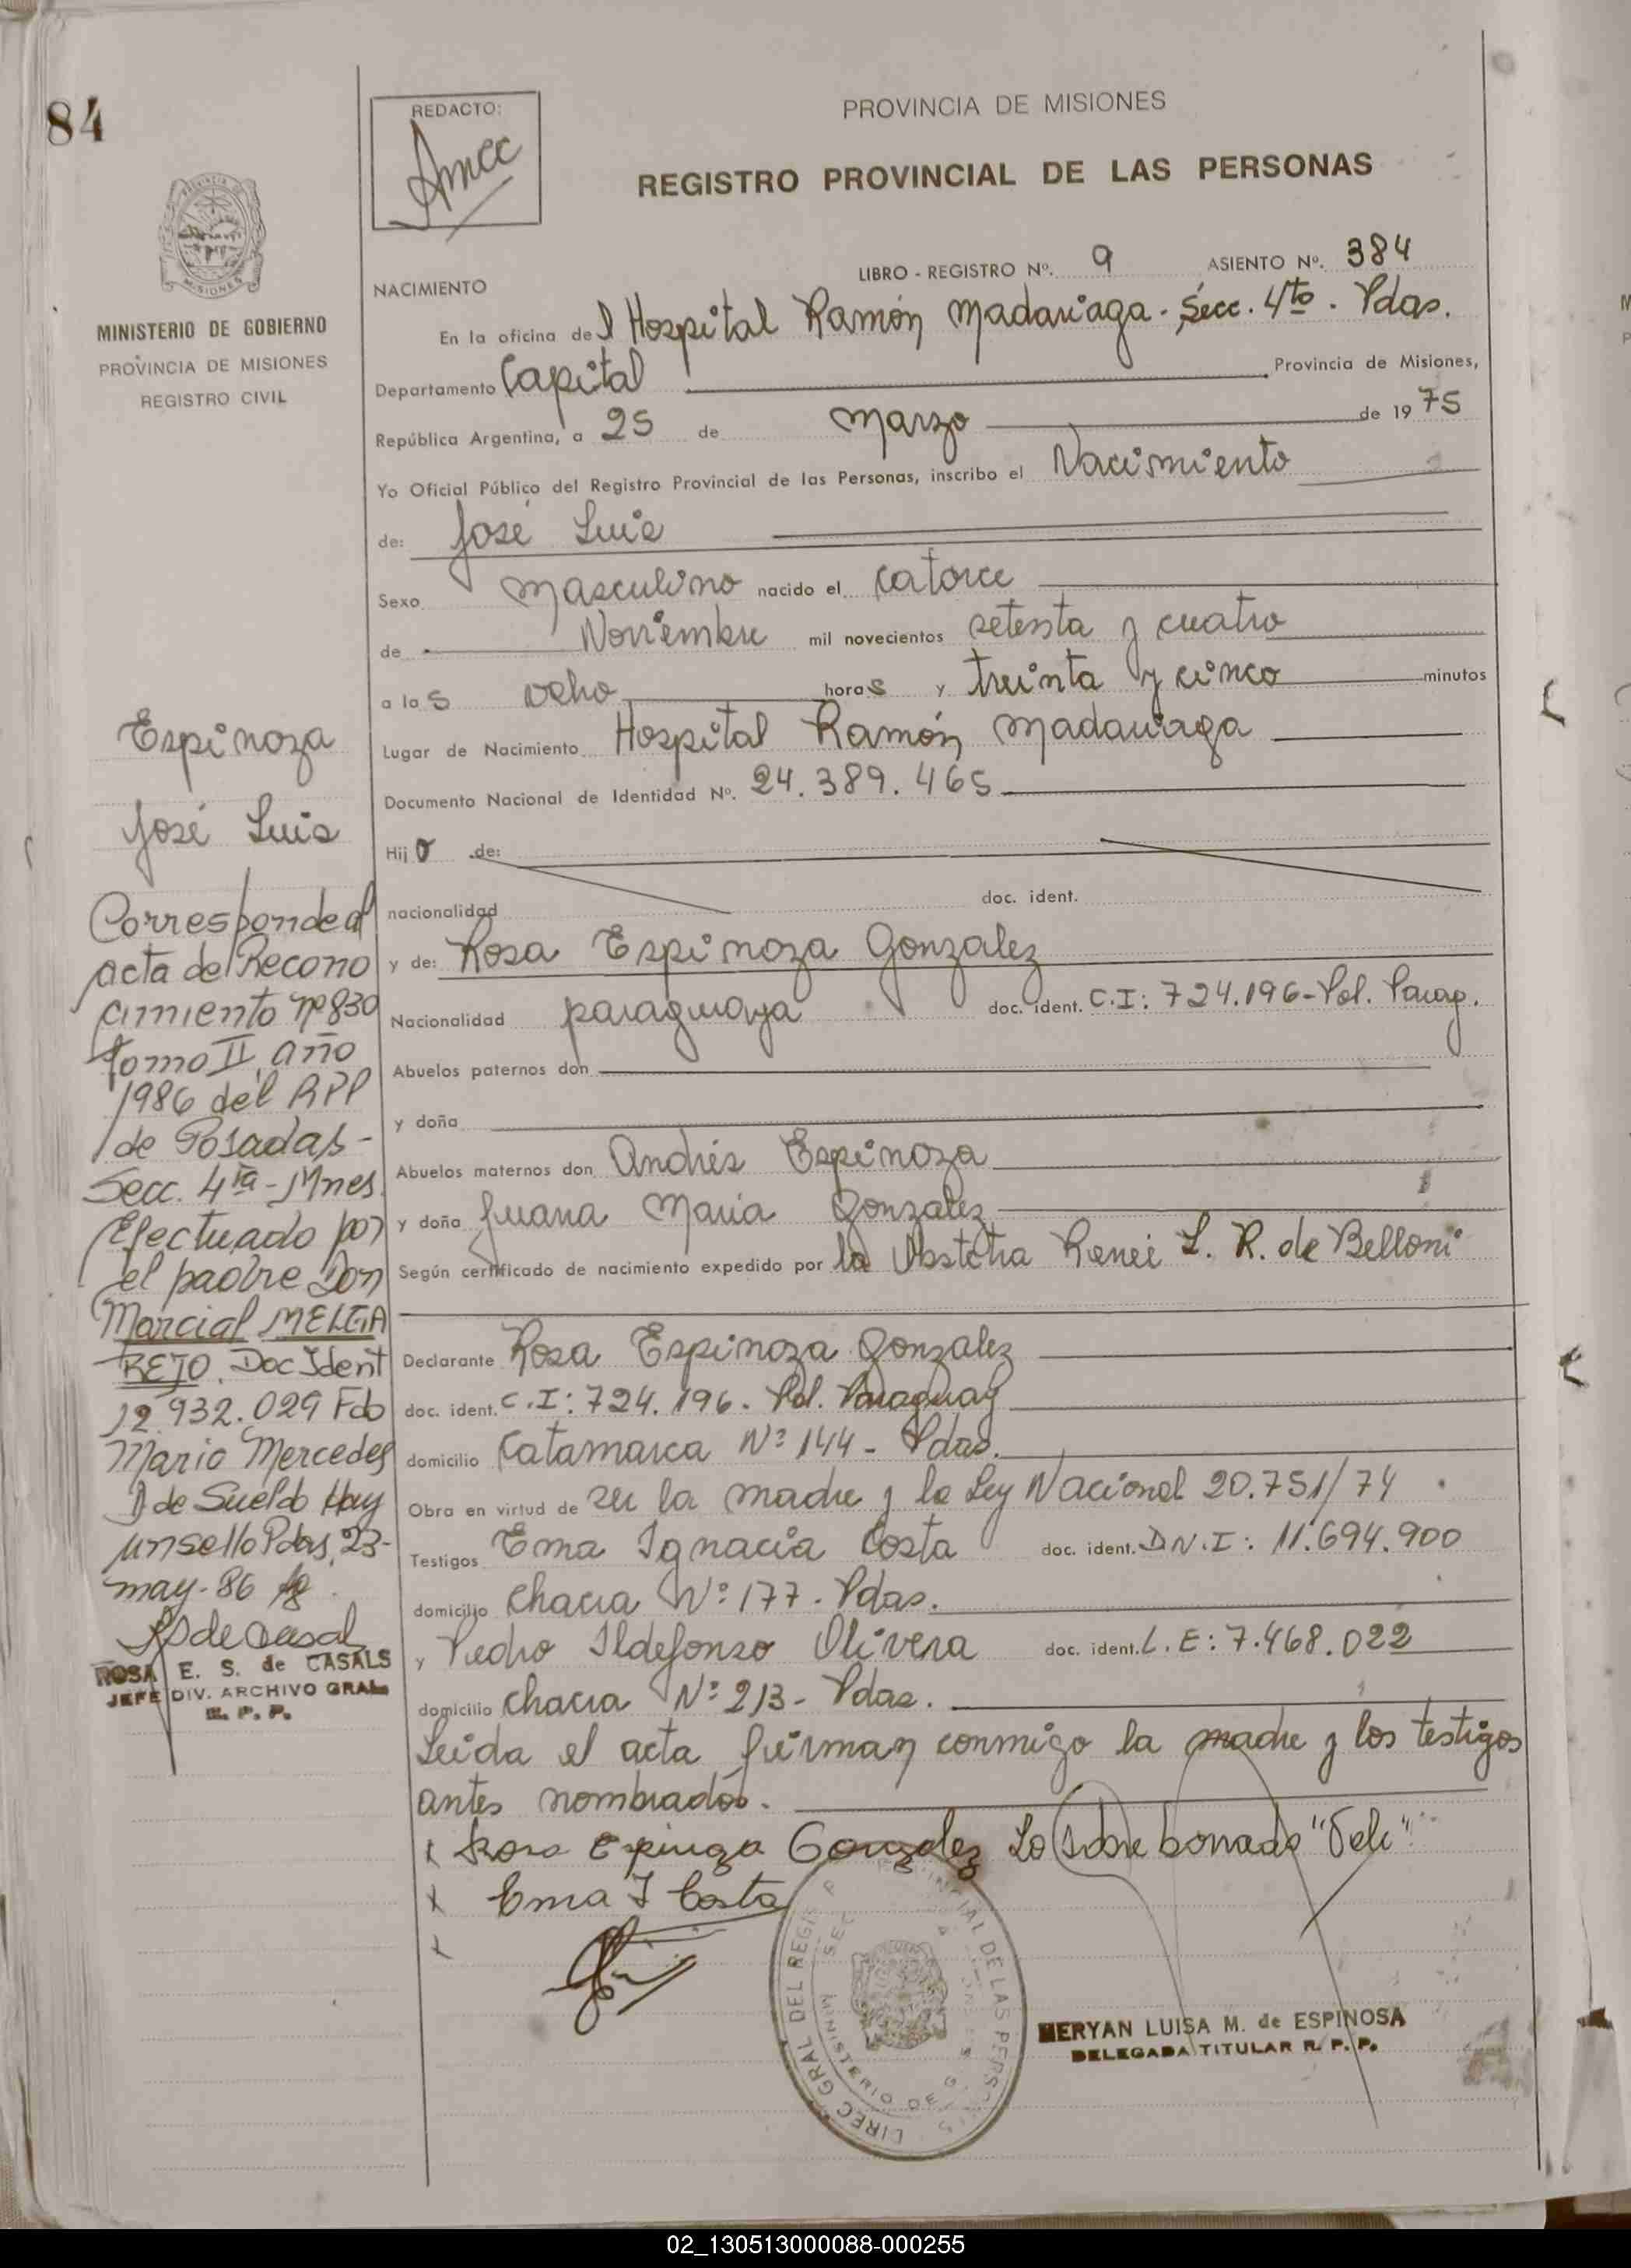 84
REDACTO:
PROVINCIA DE MISIONES
REGISTRO PROVINCIAL DE LAS PERSONAS
LIBRO - REGISTRO Nº. 9 ASIENTO Nº. 384
NACIMIENTO
MISIONES
MINISTERIO DE GOBIERNO
PROVINCIA DE MISIONES
REGISTRO CIVIL
En la oficina de l Hospital Ramón Madariaga - Secc. 4to. Pdas.
Departamento Capital Provincia de Misiones,
República Argentina, a 25 de Marzo de 1975
Yo Oficial Público del Registro Provincial de las Personas, inscribo el Nacimiento
de: José Luis
Sexo Masculino nacido el catorce
de Noviembre mil novecientos setenta y cuatro
a las ocho horas y treinta y cinco minutos
Lugar de Nacimiento Hospital Ramón Madariaga
Documento Nacional de Identidad Nº. 24.389.465
Hijo de:
nacionalidad doc. ident.
y de: Rosa Espinoza Gonzalez
Nacionalidad paraguaya doc. ident. C.I: 724.196-Pol. Parag.
Abuelos paternos don
y doña
Abuelos maternos don Andrés Espinoza
y doña Juana Maria Gonzalez
Según certificado de nacimiento expedido por la Obstetra Reneé L. R. de Belloni
Declarante Rosa Espinoza Gonzalez
doc. ident. C.I: 724.196. Pol. Paraguay
domicilio Catamarca Nº 144 - Pdas.
Obra en virtud de ser la madre y la Ley Nacional 20.751/74
Testigos Ema Ignacia Costa doc. ident. D.N.I: 11.694.900
domicilio Chacra Nº: 177. Pdas.
y Pedro Ildefonso Olivera doc. ident. L.E: 7.468.022
domicilio Chacra Nº: 213 - Pdas.
Leida el acta firman conmigo la madre y los testigos
antes nombrados.
Rosa Epinoza Gonzalez Lo sobre borrado
Ema I Costa
DIREC GRAL DEL REGIS P INCIAL DE LAS PERS
MINISTERIO DE G
MERYAN LUISA M. de ESPINOSA
DELEGADA TITULAR R. P. P.
Espinoza
José Luis
Corresponde al
acta de Recono
cimiento nº 830
tomo II, año
1986 del RPP
de Posadas -
Secc. 4ta - Mnes.
Efectuado por
el padre Don
Marcial MELGA
REJO. Doc Ident
12.932.029 Fdo
Mario Mercedes
D de Sueldo Hay
un sello Pdas, 23-
may-86
ROSA E. S. de CASALS
JEFE DIV. ARCHIVO GRAL
R. P. P.
02_130513000088-000255